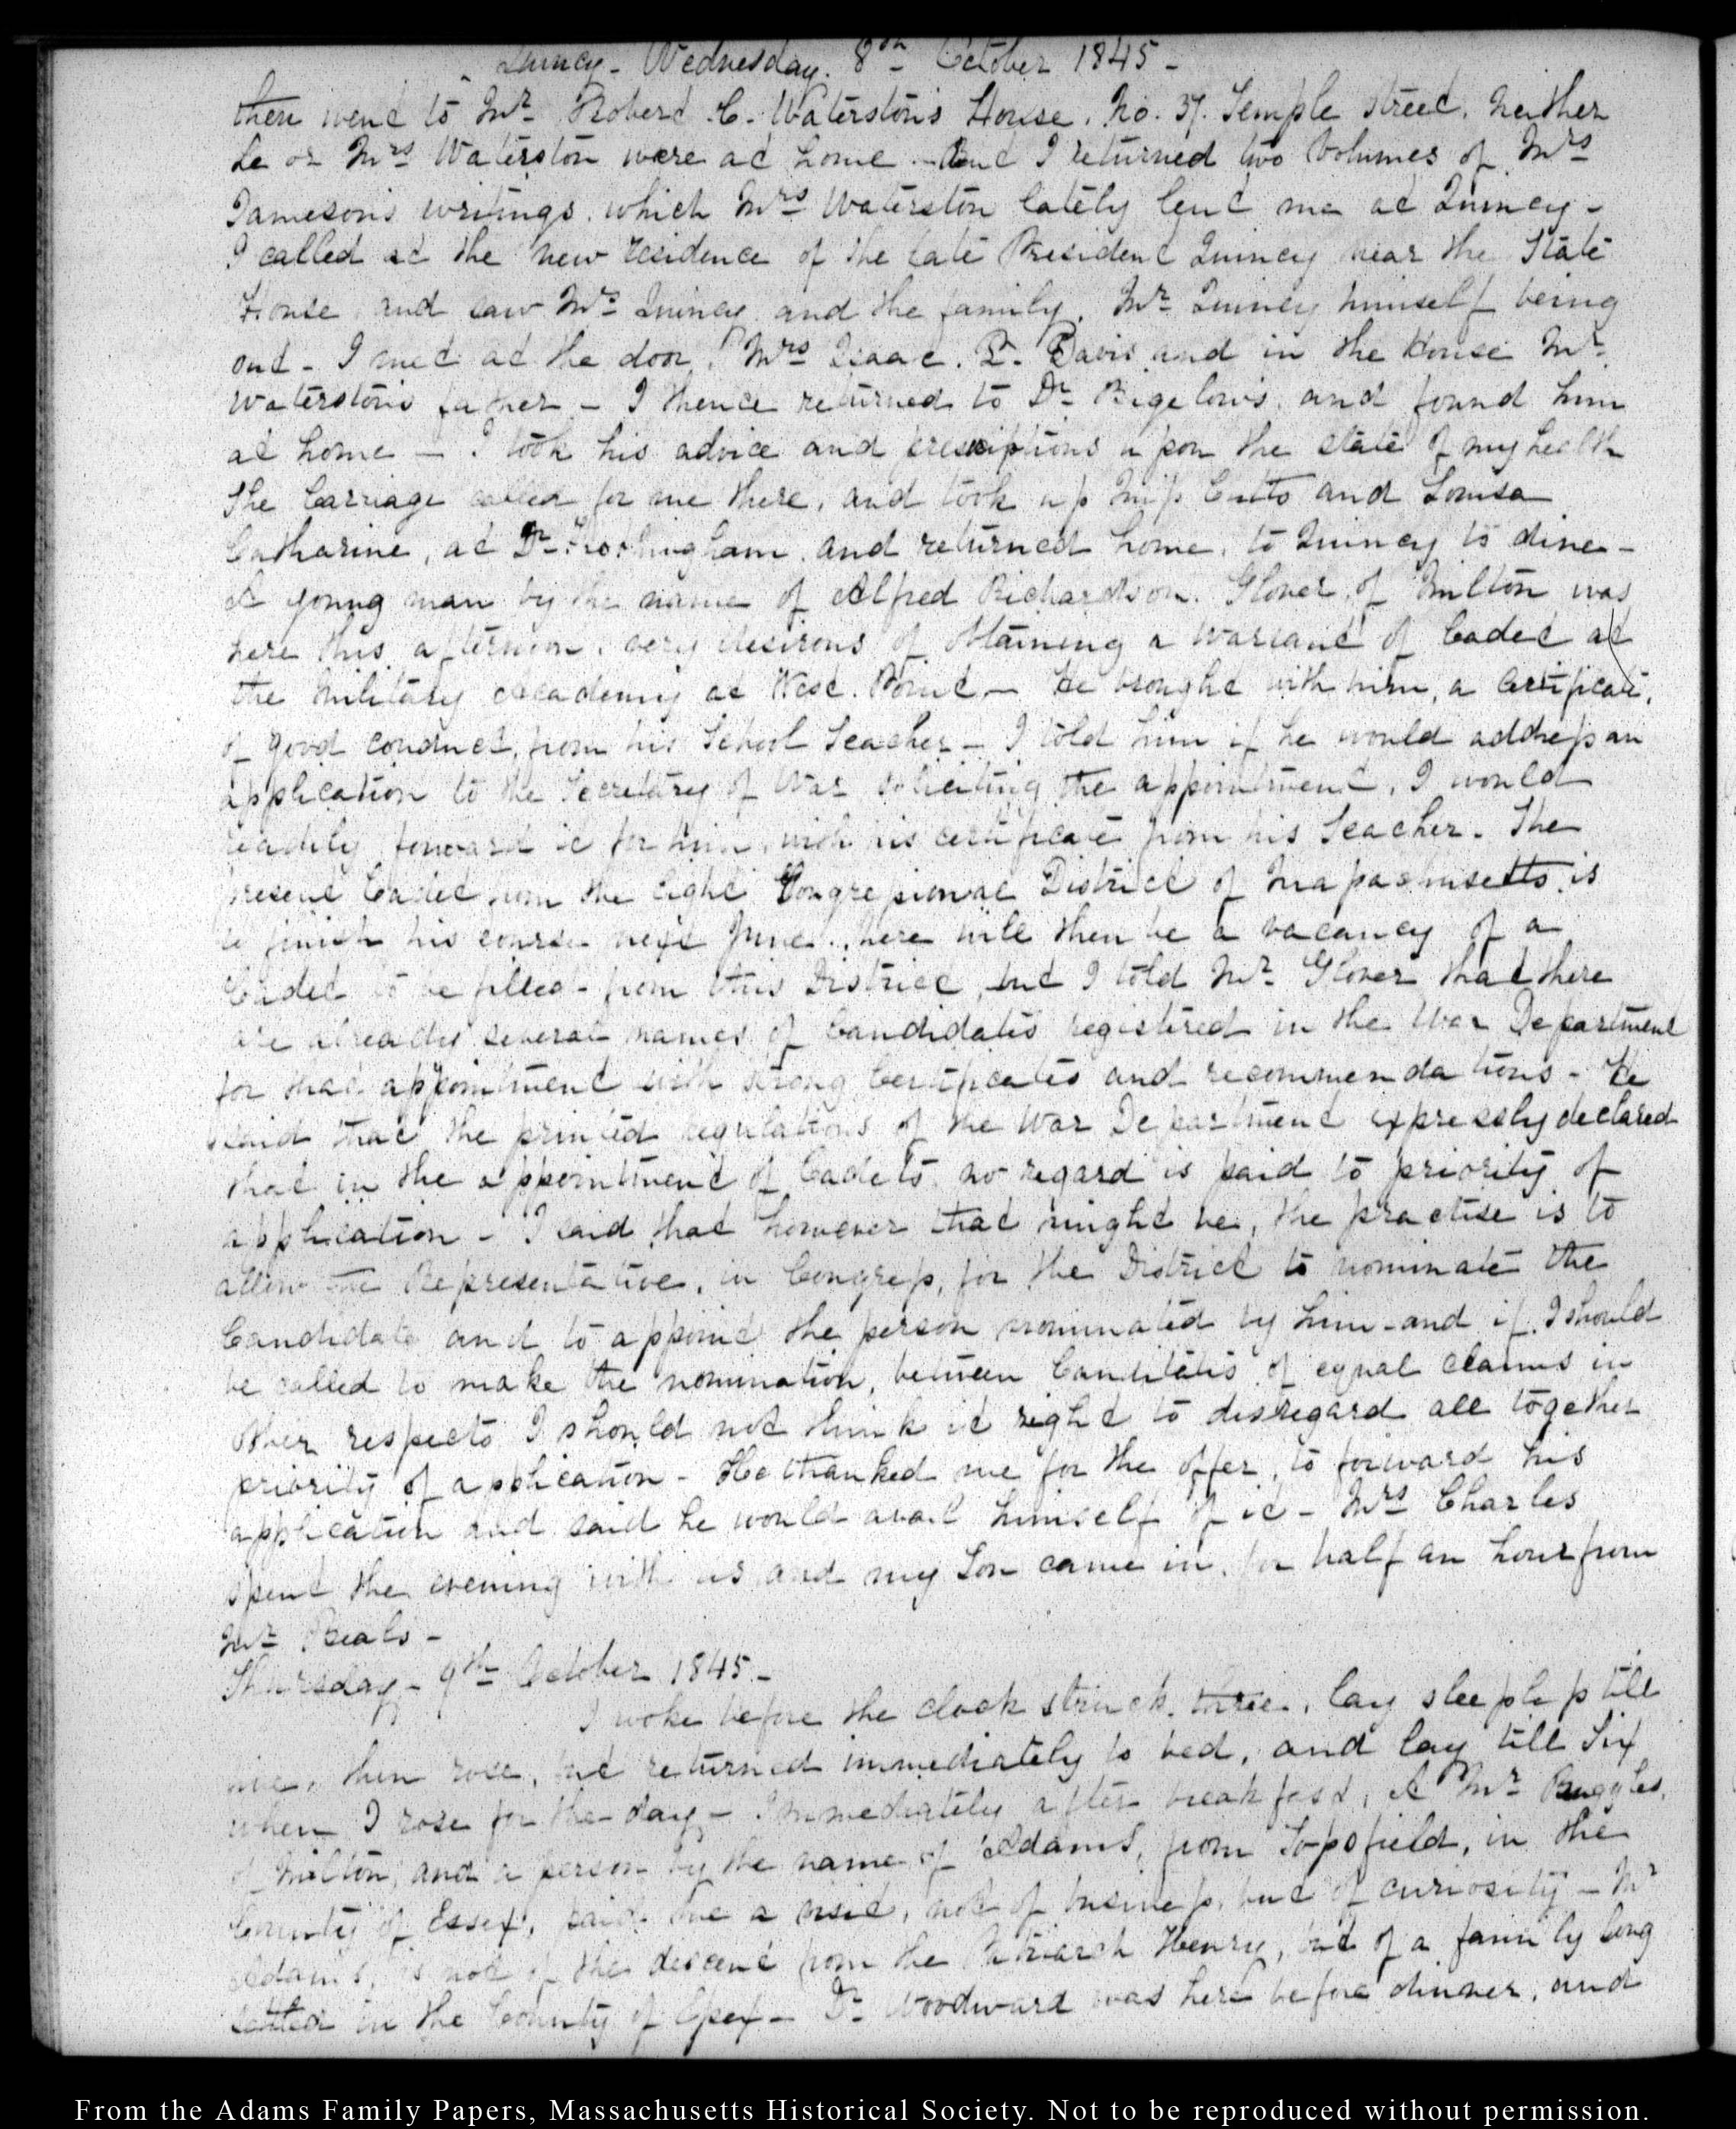 Quincy – Wednesday. 8th October 1845 –
then went to Mr Robert C. Waterston's House, No. 37. Temple Street. Neither
he or Mrs Waterston were at home – But I returned two Volumes of Mrs
Jameson's writings, which Mrs Waterston lately lent me at Quincy –
I called at the new residence of the late President Quincy near the State
House, and saw Mrs Quincy and the family, Mr Quincy himself being
out – I met at the door, Mrs Isaac. P. Davis and in the House Mr
Waterston's father – I thence returned to Dr Bigelow's, and found him
at home – I took his advice and prescriptions upon the state of my health
The Carriage called for me there, and took up Miss Cutts and Louisa
Catharine, at Dr Frothingham, and returned home, to Quincy to dine –
A young man by the name of Alfred Richardson. Glover, of Milton was
here this afternoon, very desirous of obtaining a Warrant of Cadet at
the Military Academy at West. Point – He brought with him, a Certificate,
of good conduct, from his School Teacher – I told him if he would address an
application to the Secretary of War soliciting the appointment, I would
readily forward it for him, with his certificate from his Teacher. The
present Cadet from the Eight Congressional District of Massachusetts is
to finish his course next June. there will then be a vacancy of a
Cadet to be filled – from this District, but I told Mr Glover that there
are already several names of Candidates registered in the War Department
for that appointment with strong Certificates and recommendations – He
said that the printed regulations of the War Department expressly declared
that in the appointment of Cadets, no regard is paid to priority of
application – I said that however that might be, the practise is to
allow the Representative, in Congress, for the District to nominate the
Candidate and to appoint the person nominated by him – and if I should
be called to make the nomination, between Canditates of equal claims in
other respects I should not think it right to disregard all together
priority of application – He thanked me for the offer, to forward his
application and said he would avail himself of it – Mrs Charles
spent the evening with us and my Son came in, for half an hour from
Mr Beals –
Thursday – 9th October 1845 –
I woke before the clock struck three, lay sleepless till
five, then rose, but returned immediately to bed, and lay till Six
when I rose for the day – Immediately after breakfast, A Mr Ruggles,
of Milton, and a person by the name of Adams, from Topsfield, in the
County of Essex, paid me a visit, not of business, but of curiosity – Mr
Adams, is not of the descent from the Patriarch Henry, but of a family long
settled in the County of Essex – Dr Woodward was here before dinner, and
From the Adams Family Papers, Massachusetts Historical Society. Not to be reproduced without permission.